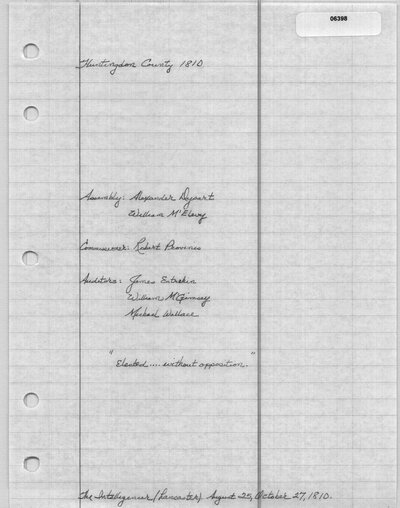 06398
Huntingdon County 1810.
Assembly: Alexander Dysart
William McElevy
Commissioner: Robert Provines
Auditors: James Entrekin
William McGimsey
Michael Wallace
"Elected.... without opposition."
The Intelligencer (Lancaster). August 25, October 27, 1810.